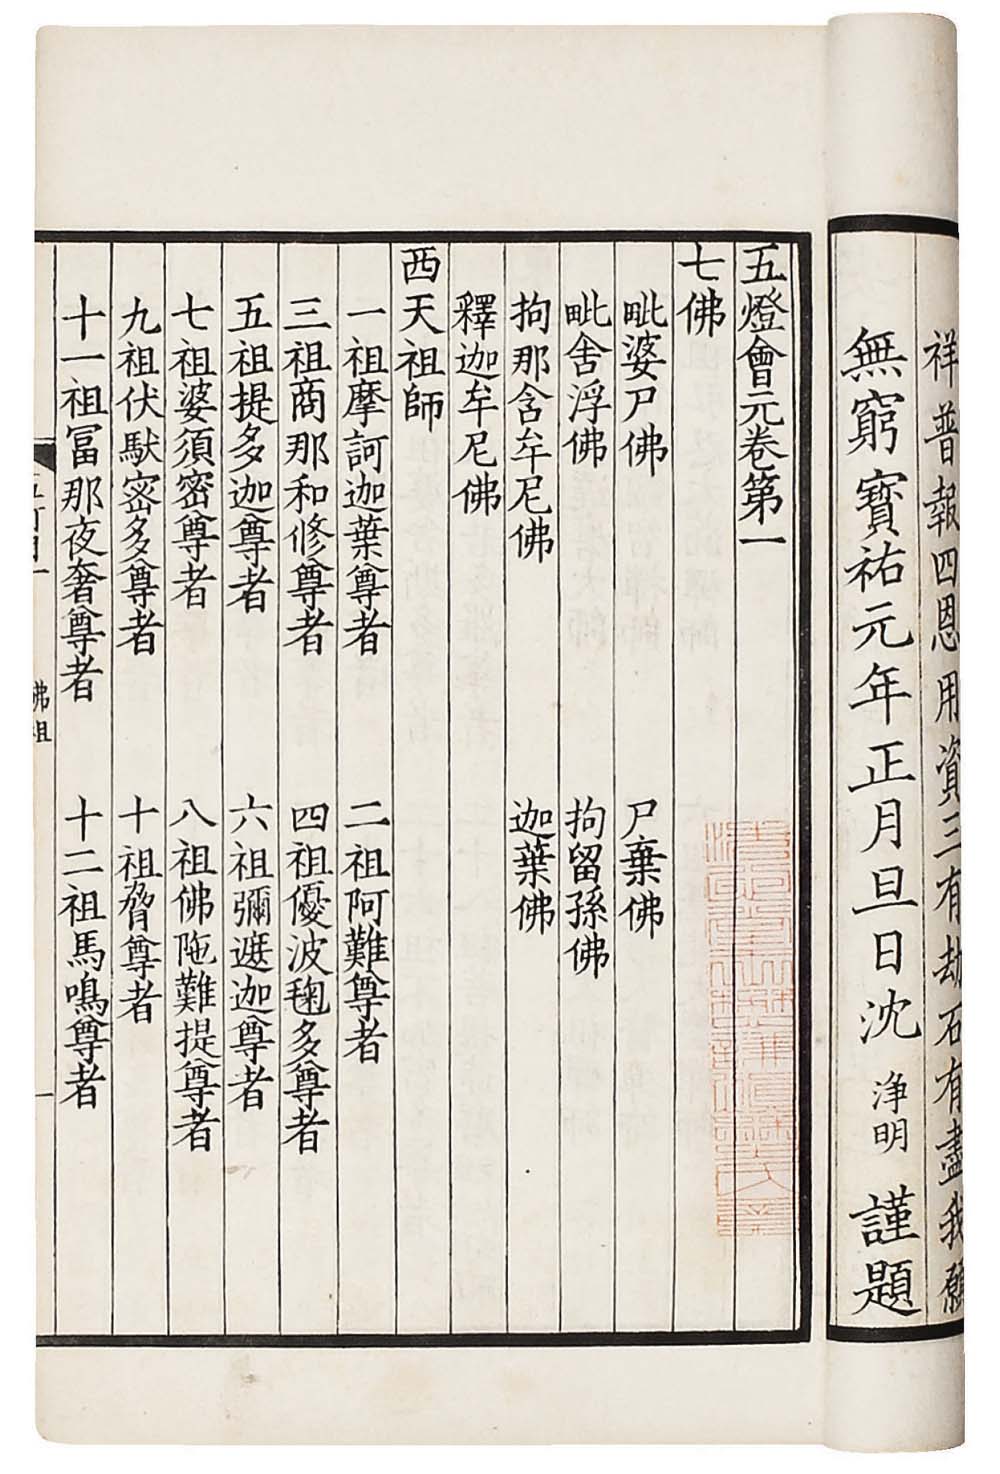 祥普報四恩用資三有劫石有盡我願
無窮寶祐元年正月旦日沈淨明謹題
五燈會元卷第一
七佛
毗婆尸佛　尸棄佛
毗舍浮佛　拘留孫佛
拘那含牟尼佛　迦葉佛
釋迦牟尼佛
西天祖師
一祖摩訶迦葉尊者　二祖阿難尊者
三祖商那和修尊者　四祖優波毱多尊者
五祖提多迦尊者　六祖彌遮迦尊者
七祖婆須密尊者　八祖佛陁難提尊者
九祖伏馱密多尊者　十祖脅尊者
十一祖冨那夜奢尊者　十二祖馬鳴尊者
佛祖
一